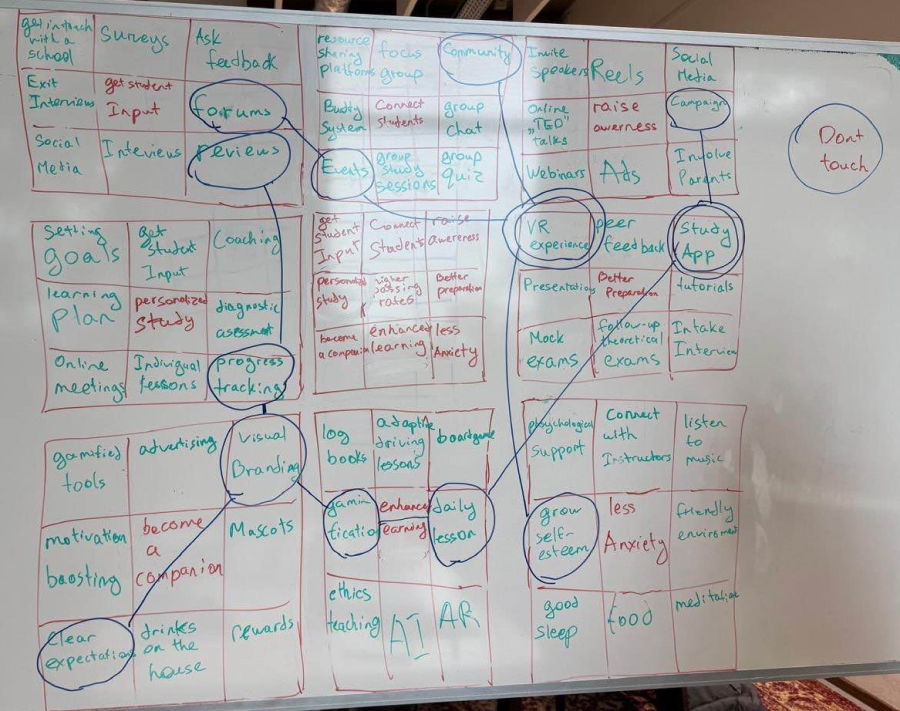 get in touch
with a
school
Surveys
Ask
feedback
Exit
Interviews
get student
Input
forums
Social
Media
Interviews
reviews
resource
sharing
platforms
focus
group
Community
Buddy
System
Connect
students
group
chat
Events
group
study
sessions
group
quiz
Invite
Speakers
Reels
Social
Media
Online
„TED"
talks
raise
owerness
Campaigns
Webinars
Ads
Involve
Parents
Dont
touch
Setting
goals
get
Student
Input
Coaching
learning
Plan
personalized
study
diagnostic
asessment
Online
meetings
Individual
lessons
progress
tracking
get
Student
Input
Connect
Student
raise
awereness
personalized
study
higher
passing
rates
Better
preparation
become
a companion
enhanced
learning
less
Anxiety
VR
experience
peer
feedback
Study
App
Presentations
Better
Preparation
tutorials
Mock
exams
follow-up
theoretical
exams
Intake
Interview
gamified
tools
advertising
Visual
Branding
motivation
boosting
become
a
companion
Mascots
Clear
expectations
drinks
on the
house
rewards
log
books
adaptive
driving
lessons
boardgame
gami
fication
enhanced
learning
daily
lesson
ethics
teaching
AI
AR
phychological
support
Connect
with
Instructors
listen
to
music
grow
self-
esteem
less
Anxiety
friendly
enviroment
good
sleep
food
meditation